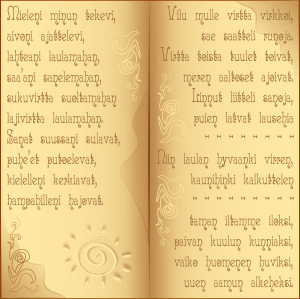 Mieleni minun tekevi,
aivoni ajattelevi,
lähteäni laulamahan,
saa'ani sanelemahan,
sukuvirttä suoltamahan
lajivirttä laulamahan.
Sanat suussani sulavat,
puhe'et putoelevat,
kielelleni kerkiävät,
hampahilleni hajovat.
Vilu mulle virttä virkkoi,
sae saatteli runoja.
Virttä toista tuulet toivat,
meren aaltoset ajoivat.
Linnut liitteli sanoja,
puien latvat lausehia
Niin laulan hyvänki virren,
kaunihinki kalkuttelen
tämän iltamme iloksi,
päivän kuulun kunniaksi,
vaiko huomenen huviksi,
uuen aamun alkeheksi.